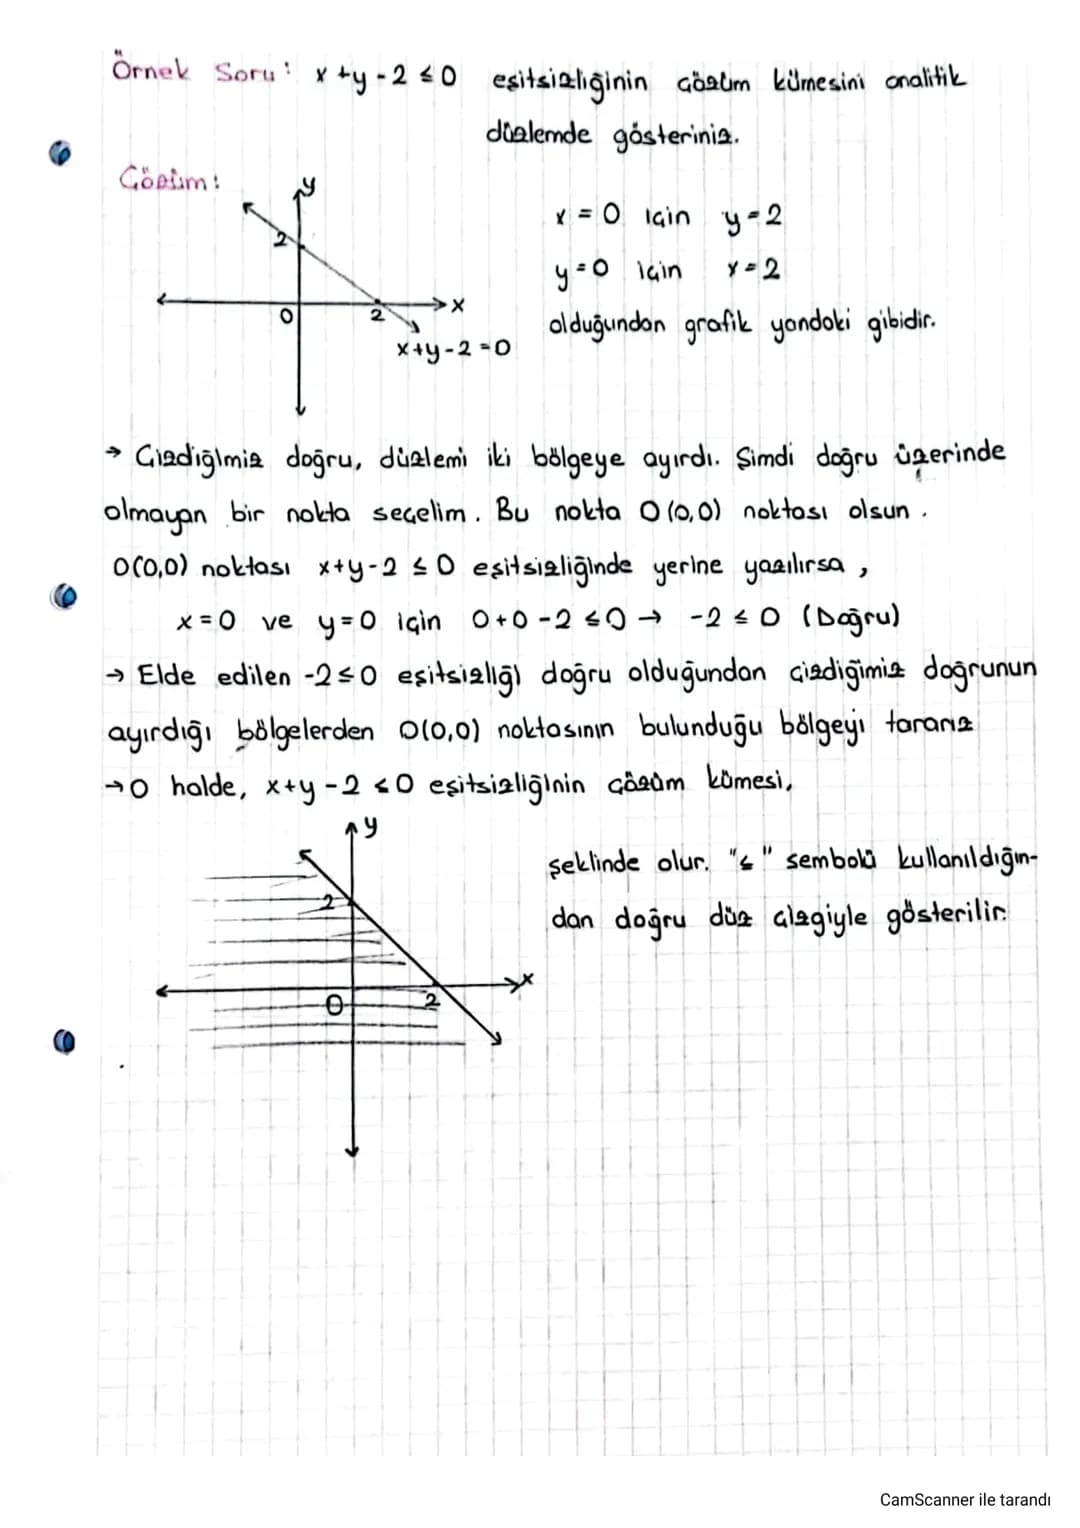 Örnek Soru: x+y-2 ≤ 0 eşitsizliğinin çözüm kümesini analitik
düzlemde gösteriniz.
Çözüm:
y
2
0
2
x
x+y-2=0
x = 0 için y=2
y=0 için x=2
olduğundan grafik yandaki gibidir.
→ Çizdiğimiz doğru, düzlemi iki bölgeye ayırdı. Şimdi doğru üzerinde
olmayan bir nokta seçelim. Bu nokta O(0,0) noktası olsun.
O(0,0) noktası x+y-2 ≤ 0 eşitsizliğinde yerine yazılırsa,
x=0 ve y=0 için 0+0-2 ≤0 → -2 ≤ 0 (Doğru)
→ Elde edilen -2≤0 eşitsizliği doğru olduğundan çizdiğimiz doğrunun
ayırdığı bölgelerden O(0,0) noktasının bulunduğu bölgeyi tararız
→ O halde, x+y-2 ≤0 eşitsizliğinin çözüm kümesi,
y
2
0
2
x
şeklinde olur. "≤" sembolü kullanıldığın-
dan doğru düz çizgiyle gösterilir.
CamScanner ile tarandı